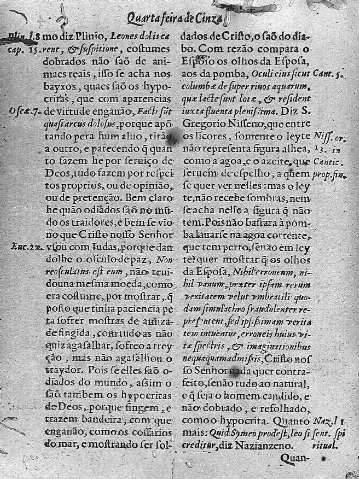 Quarta feira de Cinza
Plin. l. 8
cap. 15.
mo diz Plinio, Leones doli ca
rent, & suspitione, costumes
dobrados não saõ de ani-
maes reais, isso se acha nos
bayxos, quaes saõ os hypo-
critas, que com aparencias
Oseæ. 7.
de virtude enganão, Facti sũt
quasi arcus dolosus, porque apõ
tando pera hum alvo, tirão
a outro, e parecendo q̃ quan
to fazem he por serviço de
Deos, tudo fazem por respei
tos proprios, ou de opinião,
ou de pretenção. Bem claro
he quão odiados saõ no mũ
do os traidores, e bem se vio
no que Cristo nosso Senhor
Luc. 22.
vsou com Iudas, porque dan
dolhe o osculo de paz, Non
osculum est eum, não teu-
do na mesma moeda, como
era costume, por mostrar, q̃
posto que tinha paciencia pe
ra sofrer mostras de amiza-
de fingida, com tudo as não
quiz agasalhar, sofreo a trey
ção, mas não agasalhou o
traydor. Pois se elles saõ o-
diados do mundo, assim o
saõ tambem os hypocritas
de Deos, porque fingem, e
trazem bandeira, com que
enganão, como os cossarios
do mar, e mostrando ser sol-
dados de Cristo, o saõ do dia-
bo. Com rezão compara o
Esposo os olhos da Esposa,
aos da pomba, Oculi eius sicut
Cant. 5.
columbæ super rivos aquarum,
quæ lacte sunt lotæ, & resident
iuxta fluenta plenissima. Diz S.
Gregorio Nisseno, que entre
os licores, somente o leyte
Niss. or.
não representa figura alhea,
13. in
como a agoa, e o azeite, que
Cantic.
seruem de espelho, a quem
prop. fin.
se quer ver nelles: mas o ley
te, não recebe sombras, nem
se acha nelle a figura q̃ não
tem. Pois não bastára á pom-
ba lavarse na agoa corrente,
que tem perto, senão em ley
te: quer mostrar q̃ os olhos
da Esposa, Nihil erroneum, ni-
hil vanum, præter ipsam rerum
veritatem velut umbratili quo-
dam simulachro fraudulenter re-
præsentent, sed ipsissimam verita
tem intuentur, erroneis huius vi-
tæ spectris, & imaginationibus
nequaquam admissis, Cristo nos
so Senhor nada quer contra-
feito, senão tudo ao natural,
e q̃ seja o homem candido, e
não dobrado, e refolhado,
como o hypocrita. Quanto
Naz. l 1
mais: Quid Symeo prodest, leo si
sent. spi
creditur, diz Nazianzeno.
ritual.
Quan-